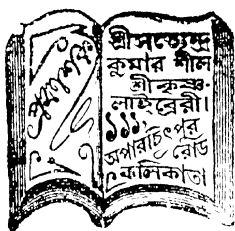 প্রকাশক
শ্রীসত্যেন্দ্র
কুমার শীল
শ্রীকৃষ্ণ
লাইব্রেরী।
১১১,
অপারচিৎপুর
রোড
কলিকাতা